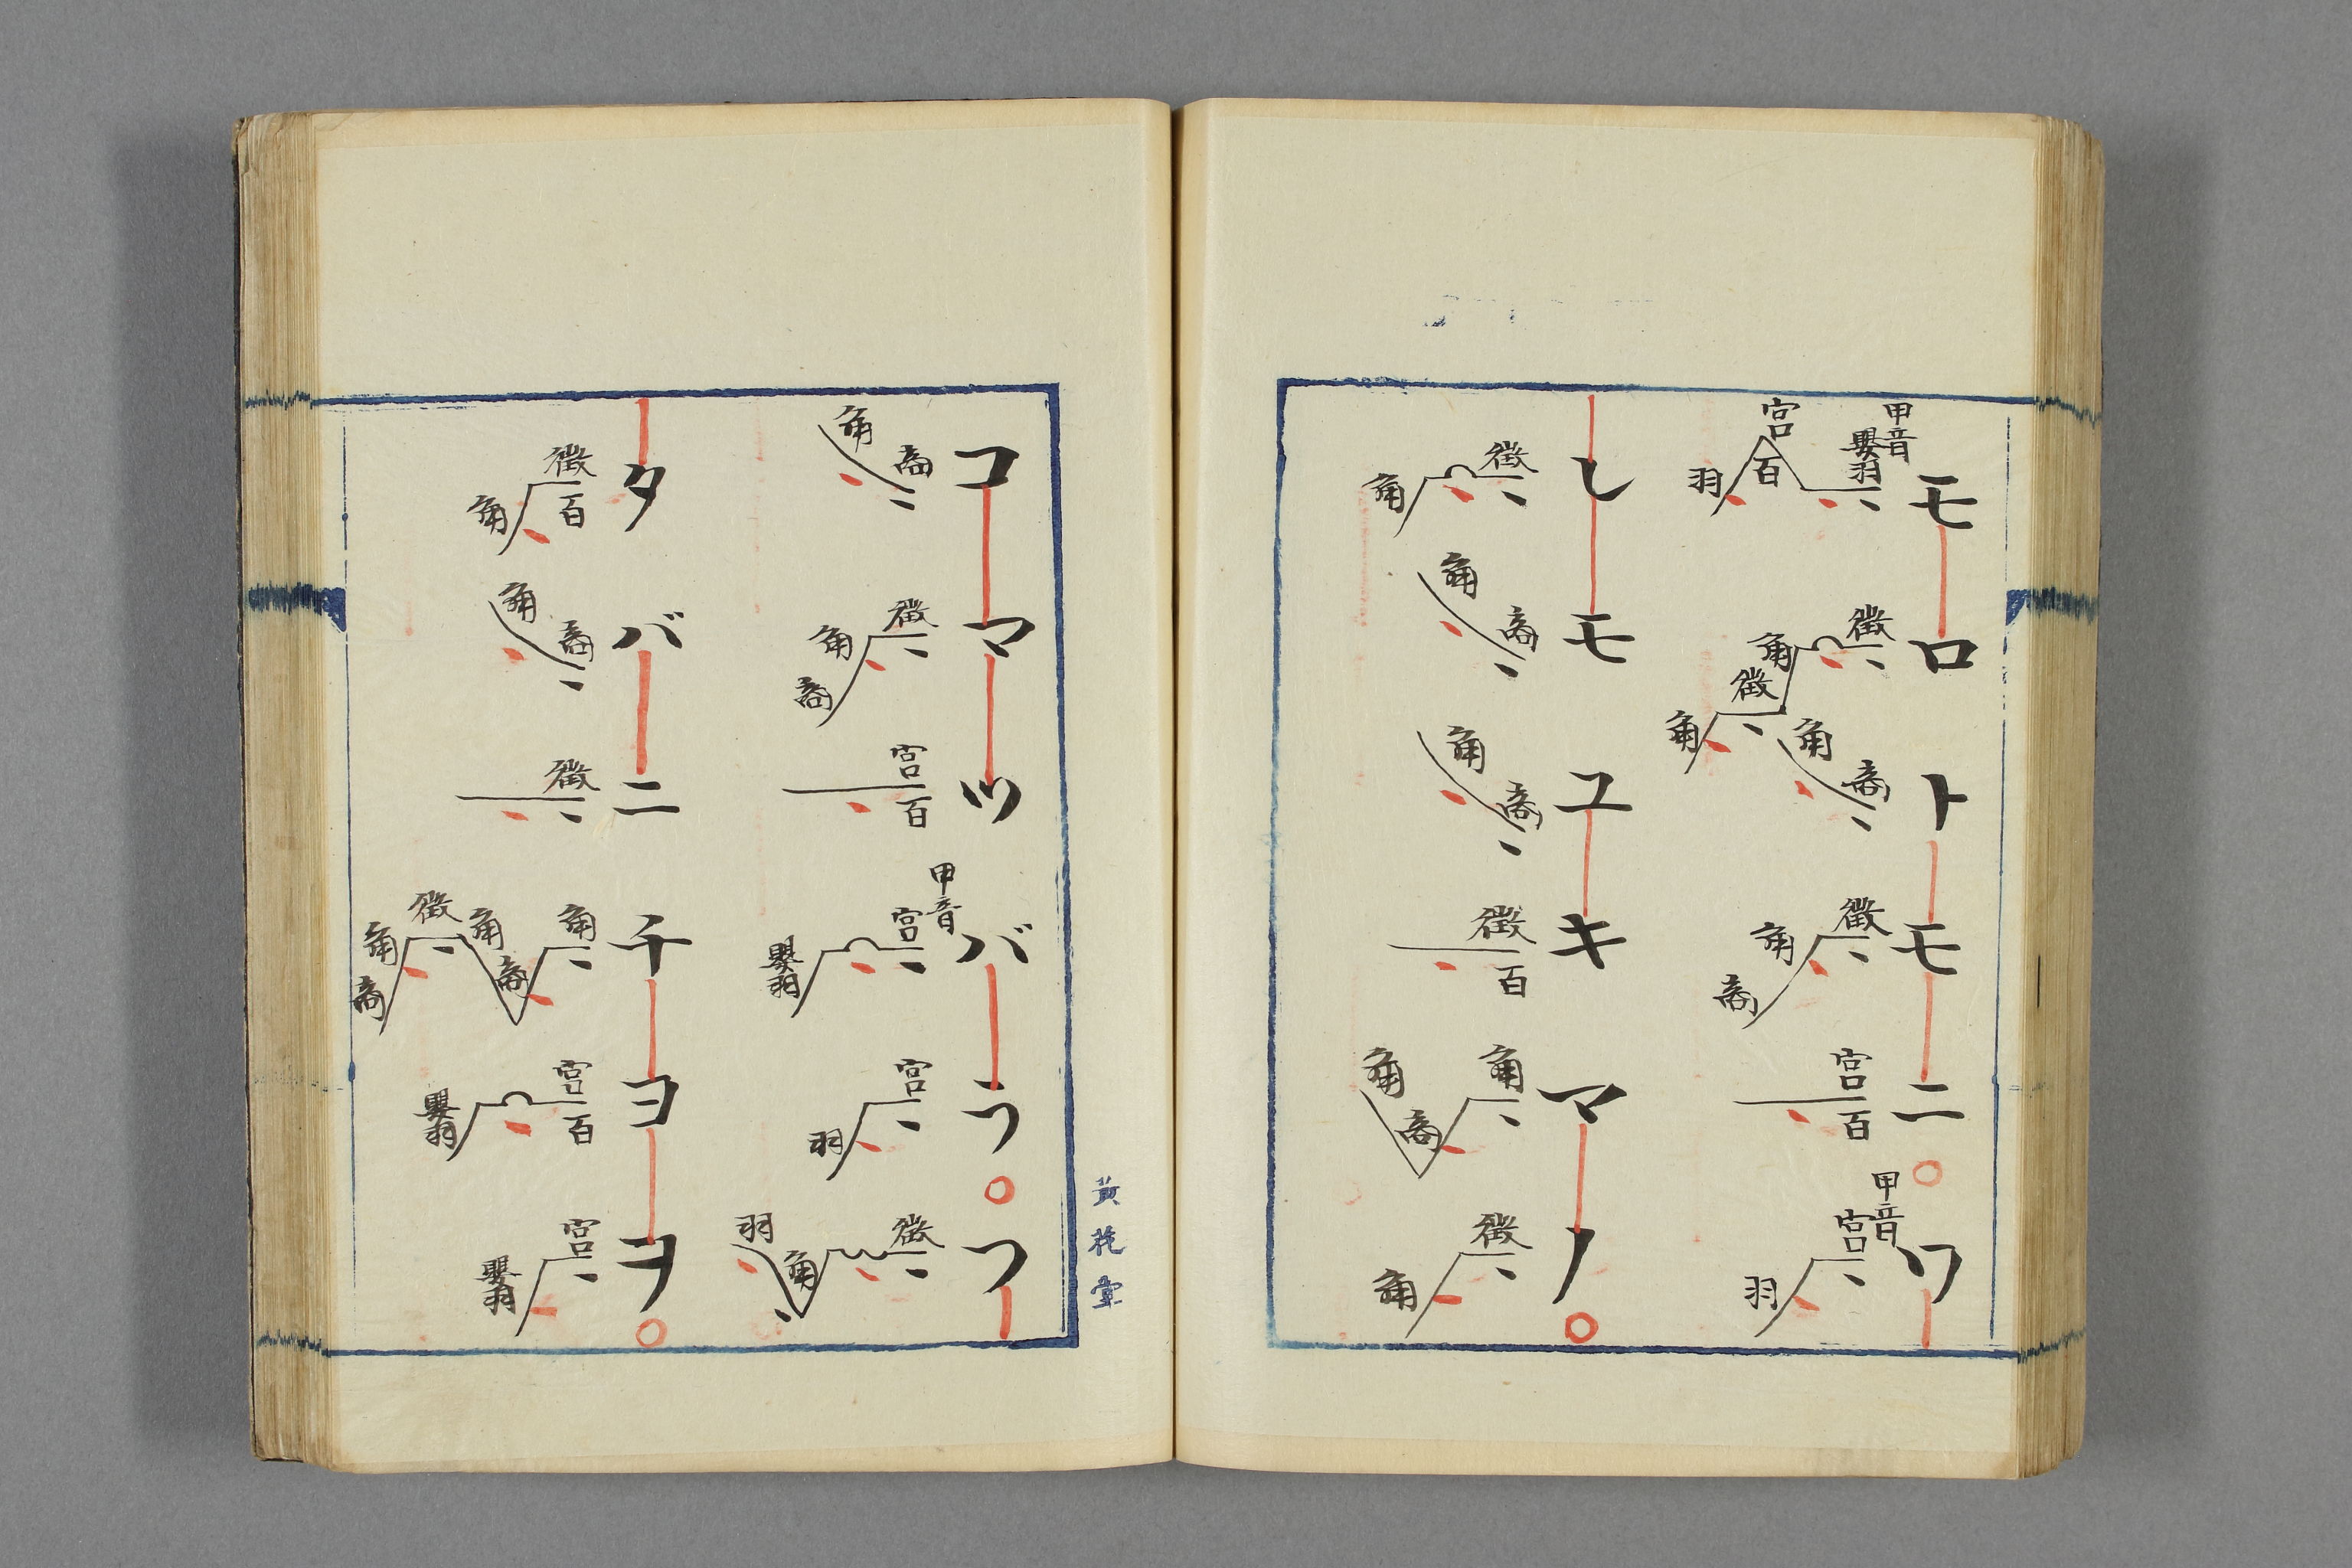 モロトモニワ
甲音 嬰羽 宮 百 羽
徴 角 徴 角
商 角
徴 角 商
宮 百
甲音 宮 羽
レモユキマノ
徴 角
商 角
商 角
徴 百
角 商 角
徴 角
コマツバラフ
商 角
徴 角 商
宮 百
甲音 宮 嬰羽
宮 羽
徴 角 羽
タバニチヨヲ
徴 百 角
商 角
徴
角 商 角 徴 角 商
宮 百 嬰羽
宮 嬰羽